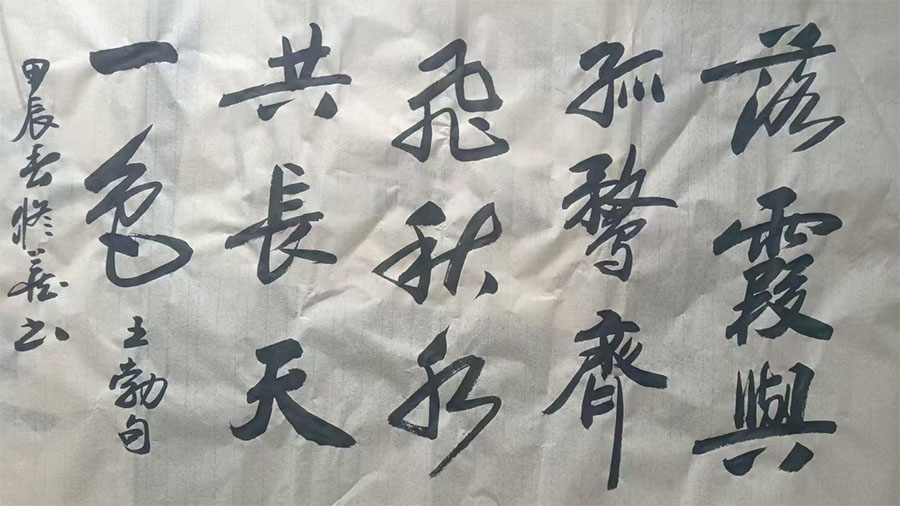 落霞與
孤鶩齊
飛秋水
共長天
一色
王勃句
甲辰春修義书